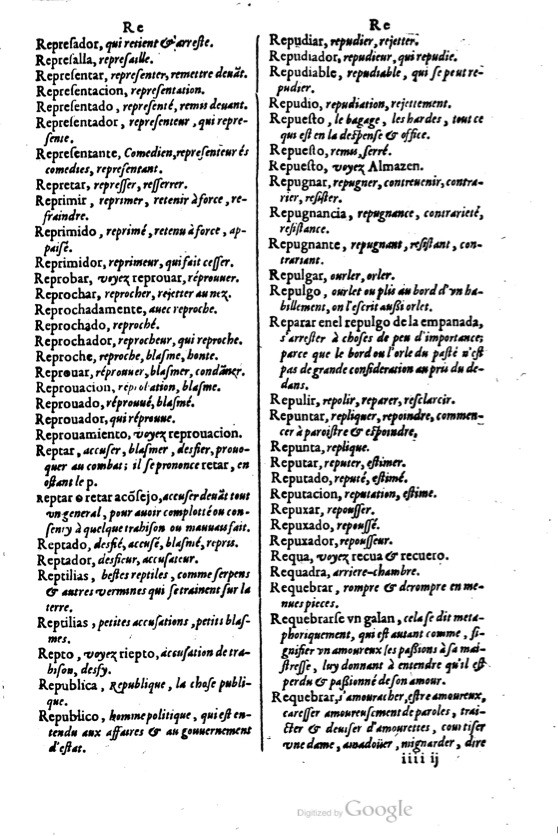 Re
Repreſador, qui retient & arreſte.
Repreſalla, repreſaille.
Repreſentar, repreſenter, remettre deuāt.
Repreſentacion, repreſentation.
Repreſentado, repreſenté, remis deuant.
Repreſentador, repreſenteur, qui repre-
ſente.
Repreſentante, Comedien, repreſenteur és
comedies, repreſentant.
Repretar, repreſſer, reſſerrer.
Reprimir, reprimer, retenir à force, re-
fraindre.
Reprimido, reprimé, retenu à force, ap-
paiſé.
Reprimidor, reprimeur, qui fait ceſſer.
Reprobar, voyez reprouar, réprouuer.
Reprochar, reprocher, rejetter au nez.
Reprochadamente, auec reproche.
Reprochado, reproché.
Reprochador, reprocheur, qui reproche.
Reproche, reproche, blaſme, honte.
Reprouar, réprouuer, blaſmer, condāner.
Reprouacion, reprobation, blaſme.
Reprouado, réprouué, blaſmé.
Reprouador, qui réprouue.
Reprouamiento, voyez reprouacion.
Reptar, accuſer, blaſmer, desfier, prouo-
quer au combat; il ſe prononce retar, en
oſtant le p.
Reptar o retar acōſejo, accuſer deuāt tout
vn general, pour auoir complotté ou con-
ſenty à quelque trahiſon ou mauuais fait.
Reptado, desfié, accuſé, blaſmé, repris.
Reptador, desfieur, accuſateur.
Reptilias, beſtes reptiles, comme ſerpens
& autres vermines qui ſe trainent ſur la
terre.
Reptilias, petites accuſations, petits blaſ-
mes.
Repto, voyez riepto, accuſation de tra-
hiſon, desfy.
Republica, Republique, la choſe publi-
que.
Republico, homme politique, qui eſt en-
tendu aux affaires & au gouuernement
d'eſtat.
Re
Repudiar, repudier, rejetter.
Repudiador, repudieur, qui repudie.
Repudiable, repudiable, qui ſe peut re-
pudier.
Repudio, repudiation, rejettement.
Repueſto, le bagage, les hardes, tout ce
qui eſt en la deſpenſe & office.
Repueſto, remis, ſerré.
Repueſto, voyez Almazen.
Repugnar, repugner, contreuenir, contra-
rier, reſiſter.
Repugnancia, repugnance, contrarieté,
reſiſtance.
Repugnante, repugnant, reſiſtant, con-
trariant.
Repulgar, ourler, orler.
Repulgo, ourlet ou plis au bord d'vn ha-
billement, on l'eſcrit auſſi orlet.
Reparar en el repulgo de la empanada,
s'arreſter à choſes de peu d'importance;
parce que le bord ou l'orle du paſté n'eſt
pas de grande conſideration au pris du de-
dans.
Repulir, repolir, reparer, reſclarcir.
Repuntar, repliquer, repoindre, commen-
cer à paroiſtre & eſpoindre.
Repunta, replique.
Reputar, reputer, eſtimer.
Reputado, reputé, eſtimé.
Reputacion, reputation, eſtime.
Repuxar, repouſſer.
Repuxado, repouſſé.
Repuxador, repouſſeur.
Requa, voyez recua & recuero.
Requadra, arriere-chambre.
Requebrar, rompre & derompre en me-
nues pieces.
Requebrarſe vn galan, cela ſe dit meta-
phoriquement, qui eſt autant comme, ſi-
gnifier vn amoureux ſes paſſions à ſa mai-
ſtreſſe, luy donnant à entendre qu'il eſt
perdu & paſſionné de ſon amour.
Requebrar, s'amouracher, eſtre amoureux,
careſſer amoureuſement de paroles, trai-
cter & deuiſer d'amourettes, courtiſer
vne dame, amadoüer, mignarder, dire
iiii ij
Digitized by Google